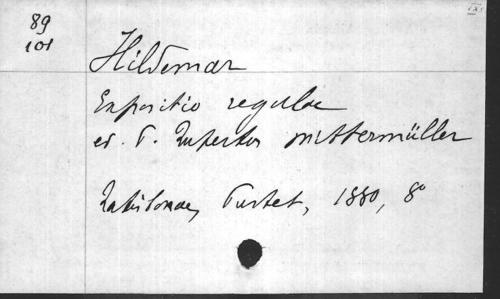 89
101
Hildemar
Expositio regulae
ed. P. Rupertus Mittermüller
Ratisbonae, Pustet, 1880, 8°